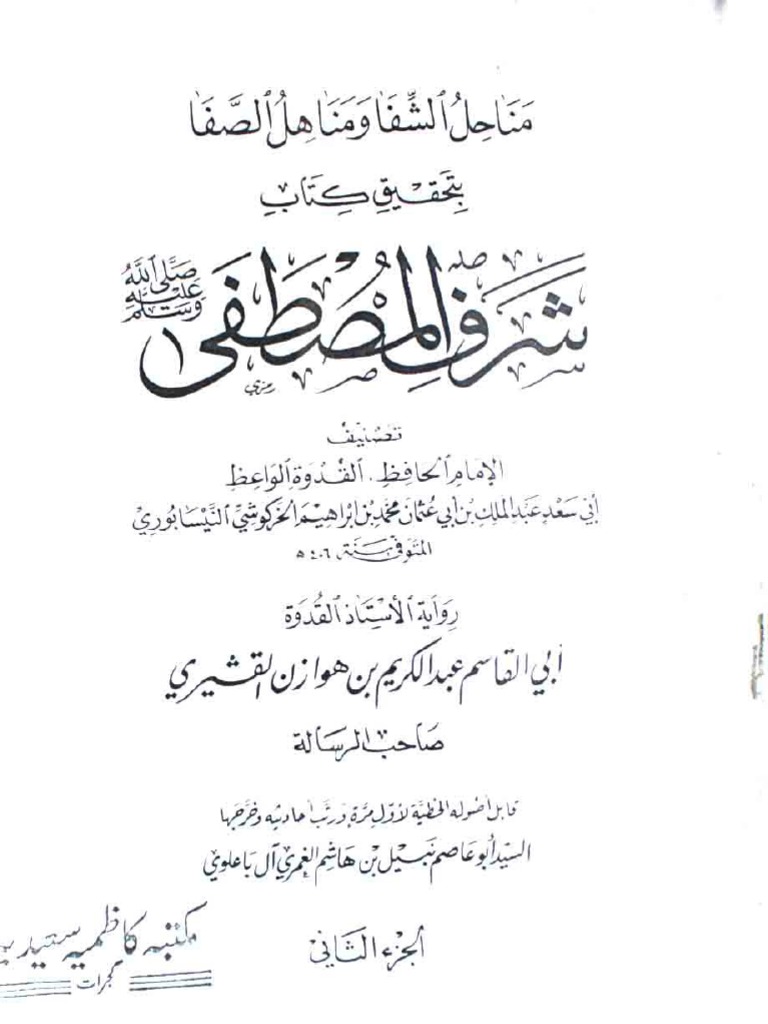 مَنَاحِلُ ٱلشِّفَا وَمَنَاهِلُ ٱلصَّفَا
بِتَحْقِيقِ كِتَابِ
شَرَفِ المُصْطَفَى صَلَّى ٱللَّهُ عَلَيْهِ وَسَلَّم
تصنيف
الإمام الحافظ . القدوة الواعظ
أبي سَعد عبد الملك بن أبي عثمان محمد بن ابراهيم الخركوشي النيسابوري
المتوفى سنة ٤٠٦ هـ
رواية الأستاذ القدوة
أبي القاسم عبد الكريم بن هوازن القشيري
صاحب الرسالة
قابل أصوله الخطية لأول مرة ورتب أحاديثه وخرجها
السيد أبو عاصم نبيل بن هاشم الغمري آل باعلوي
الجزء الثاني
مكتبہ کاظمیہ
گجرات